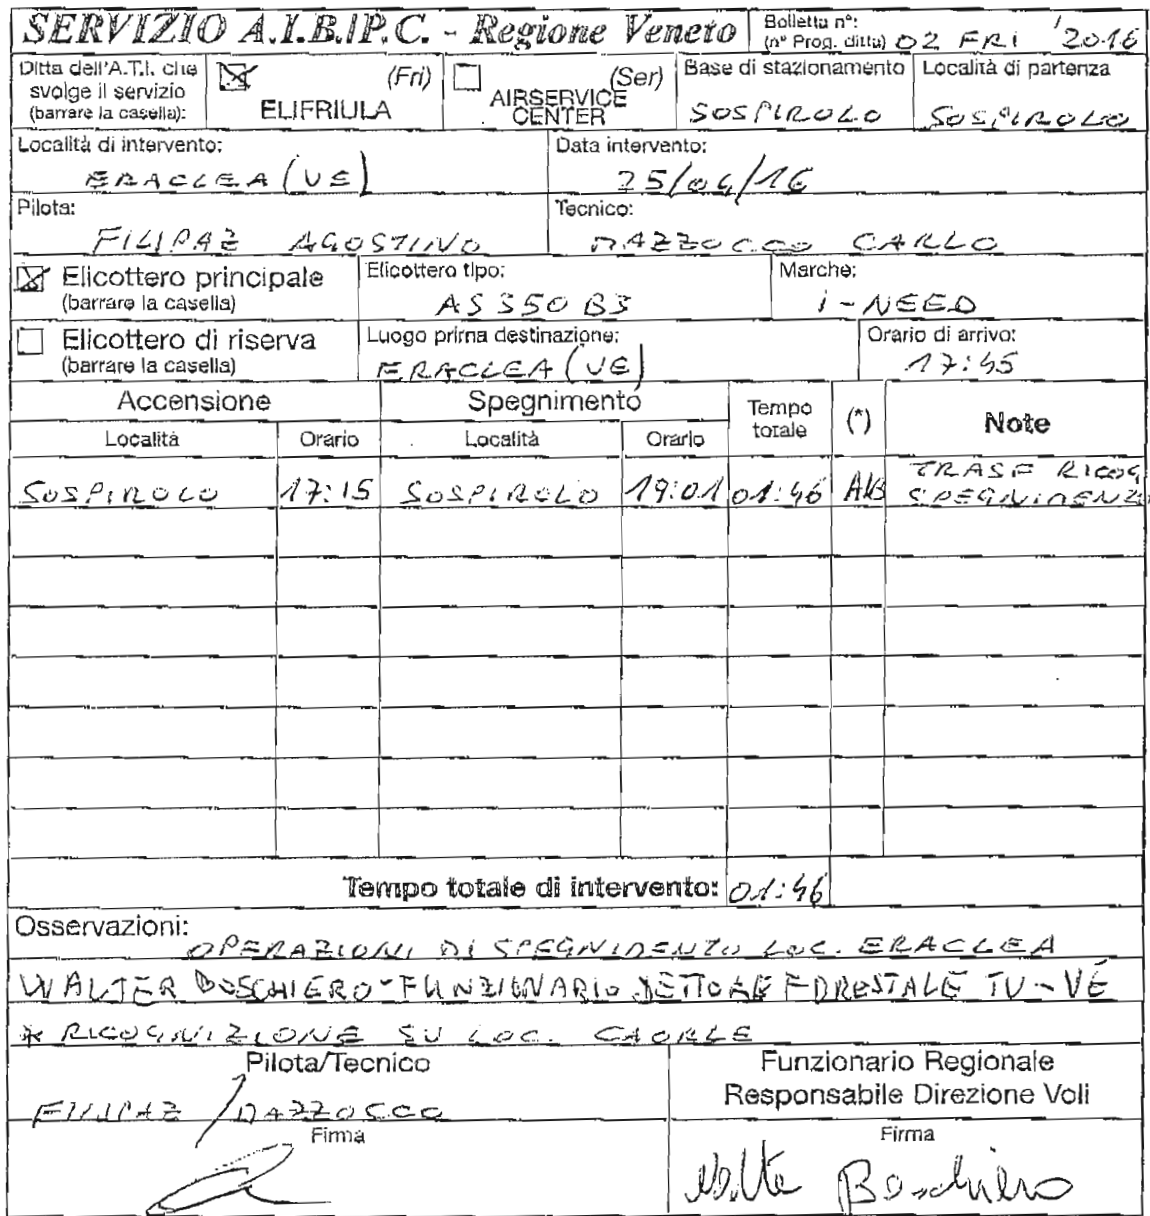 SERVIZIO A.I.B./P.C. - Regione Veneto
Bolletta n°:
(n° Prog. ditta) 02 FRI /2016
Ditta dell'A.T.I. che
svolge il servizio
(barrare la casella):
(Fri)
ELIFRIULA
(Ser)
AIRSERVICE
CENTER
Base di stazionamento
SOSPIROLO
Località di partenza
SOSPIROLO
Località di intervento:
ERACLEA (VE)
Data intervento:
25/04/16
Pilota:
FILIPAZ AGOSTINO
Tecnico:
MAZZOCCO CARLO
Elicottero principale
(barrare la casella)
Elicottero tipo:
AS350B3
Marche:
i-NEED
Elicottero di riserva
(barrare la casella)
Luogo prima destinazione:
ERACLEA (VE)
Orario di arrivo:
17:45
Accensione Spegnimento Tempo totale (*) Note
Località Orario Località Orario
SOSPIROLO 17:15 SOSPIROLO 19:01 01:46 AIB TRASF RICOG
SPEGNIMENZO
Tempo totale di intervento: 01:46
Osservazioni:
OPERAZIONI DI SPEGNIMENTO LOC. ERACLEA
WALTER BOSCHIERO - FUNZIONARIO SETTORE FORESTALE TV-VE
* RICOGNIZIONE SU LOC. CAORLE
Pilota/Tecnico
FILIPAZ / MAZZOCCO
Firma
Funzionario Regionale
Responsabile Direzione Voli
Firma
Walter Boschiero